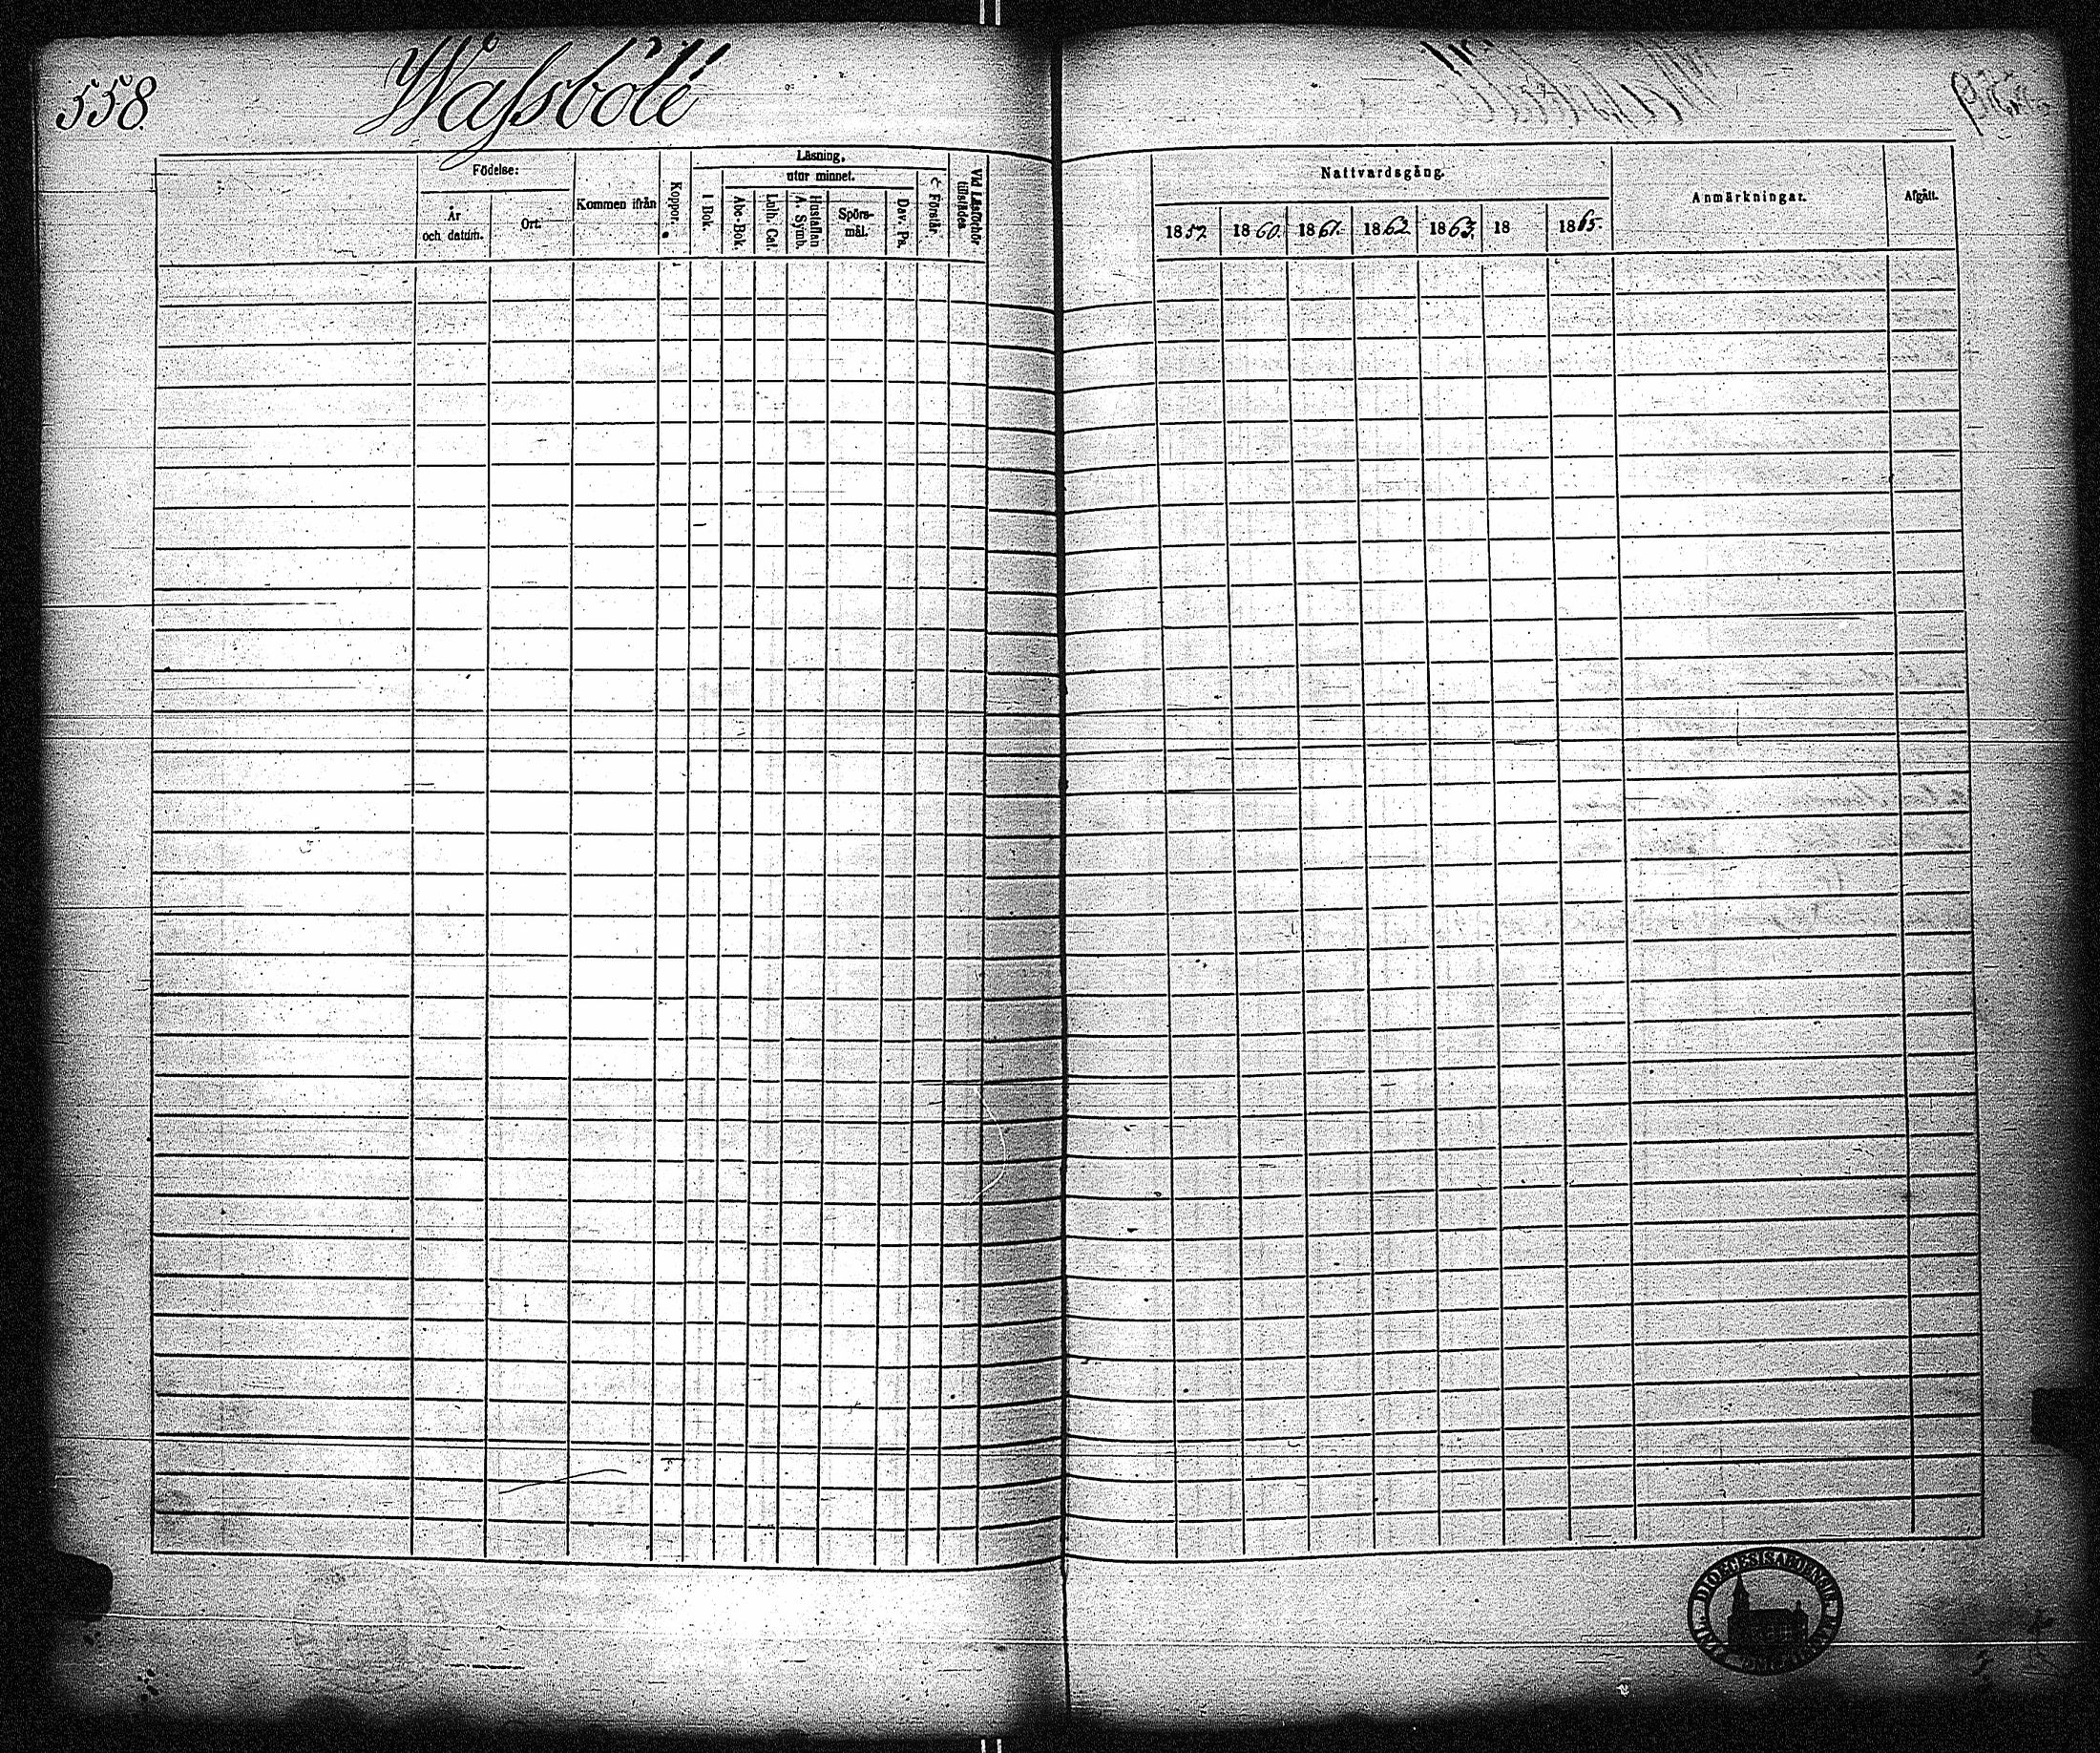 558.
Wassböle
Födelse:
År
och datum.
Ort.
Kommen ifrån
Koppor.
Läsning,
I Bok.
utur minnet.
Abc-Bok.
Luth. Cat.
Hustaflan
A. Symb.
Spörs-
mål.
Dav. Ps.
Förstår.
Vid Läsförhör
tillstädes
Nattvardsgång.
1859. 1860. 1861. 1862. 1863. 18 1865.
Anmärkningar.
Afgått.